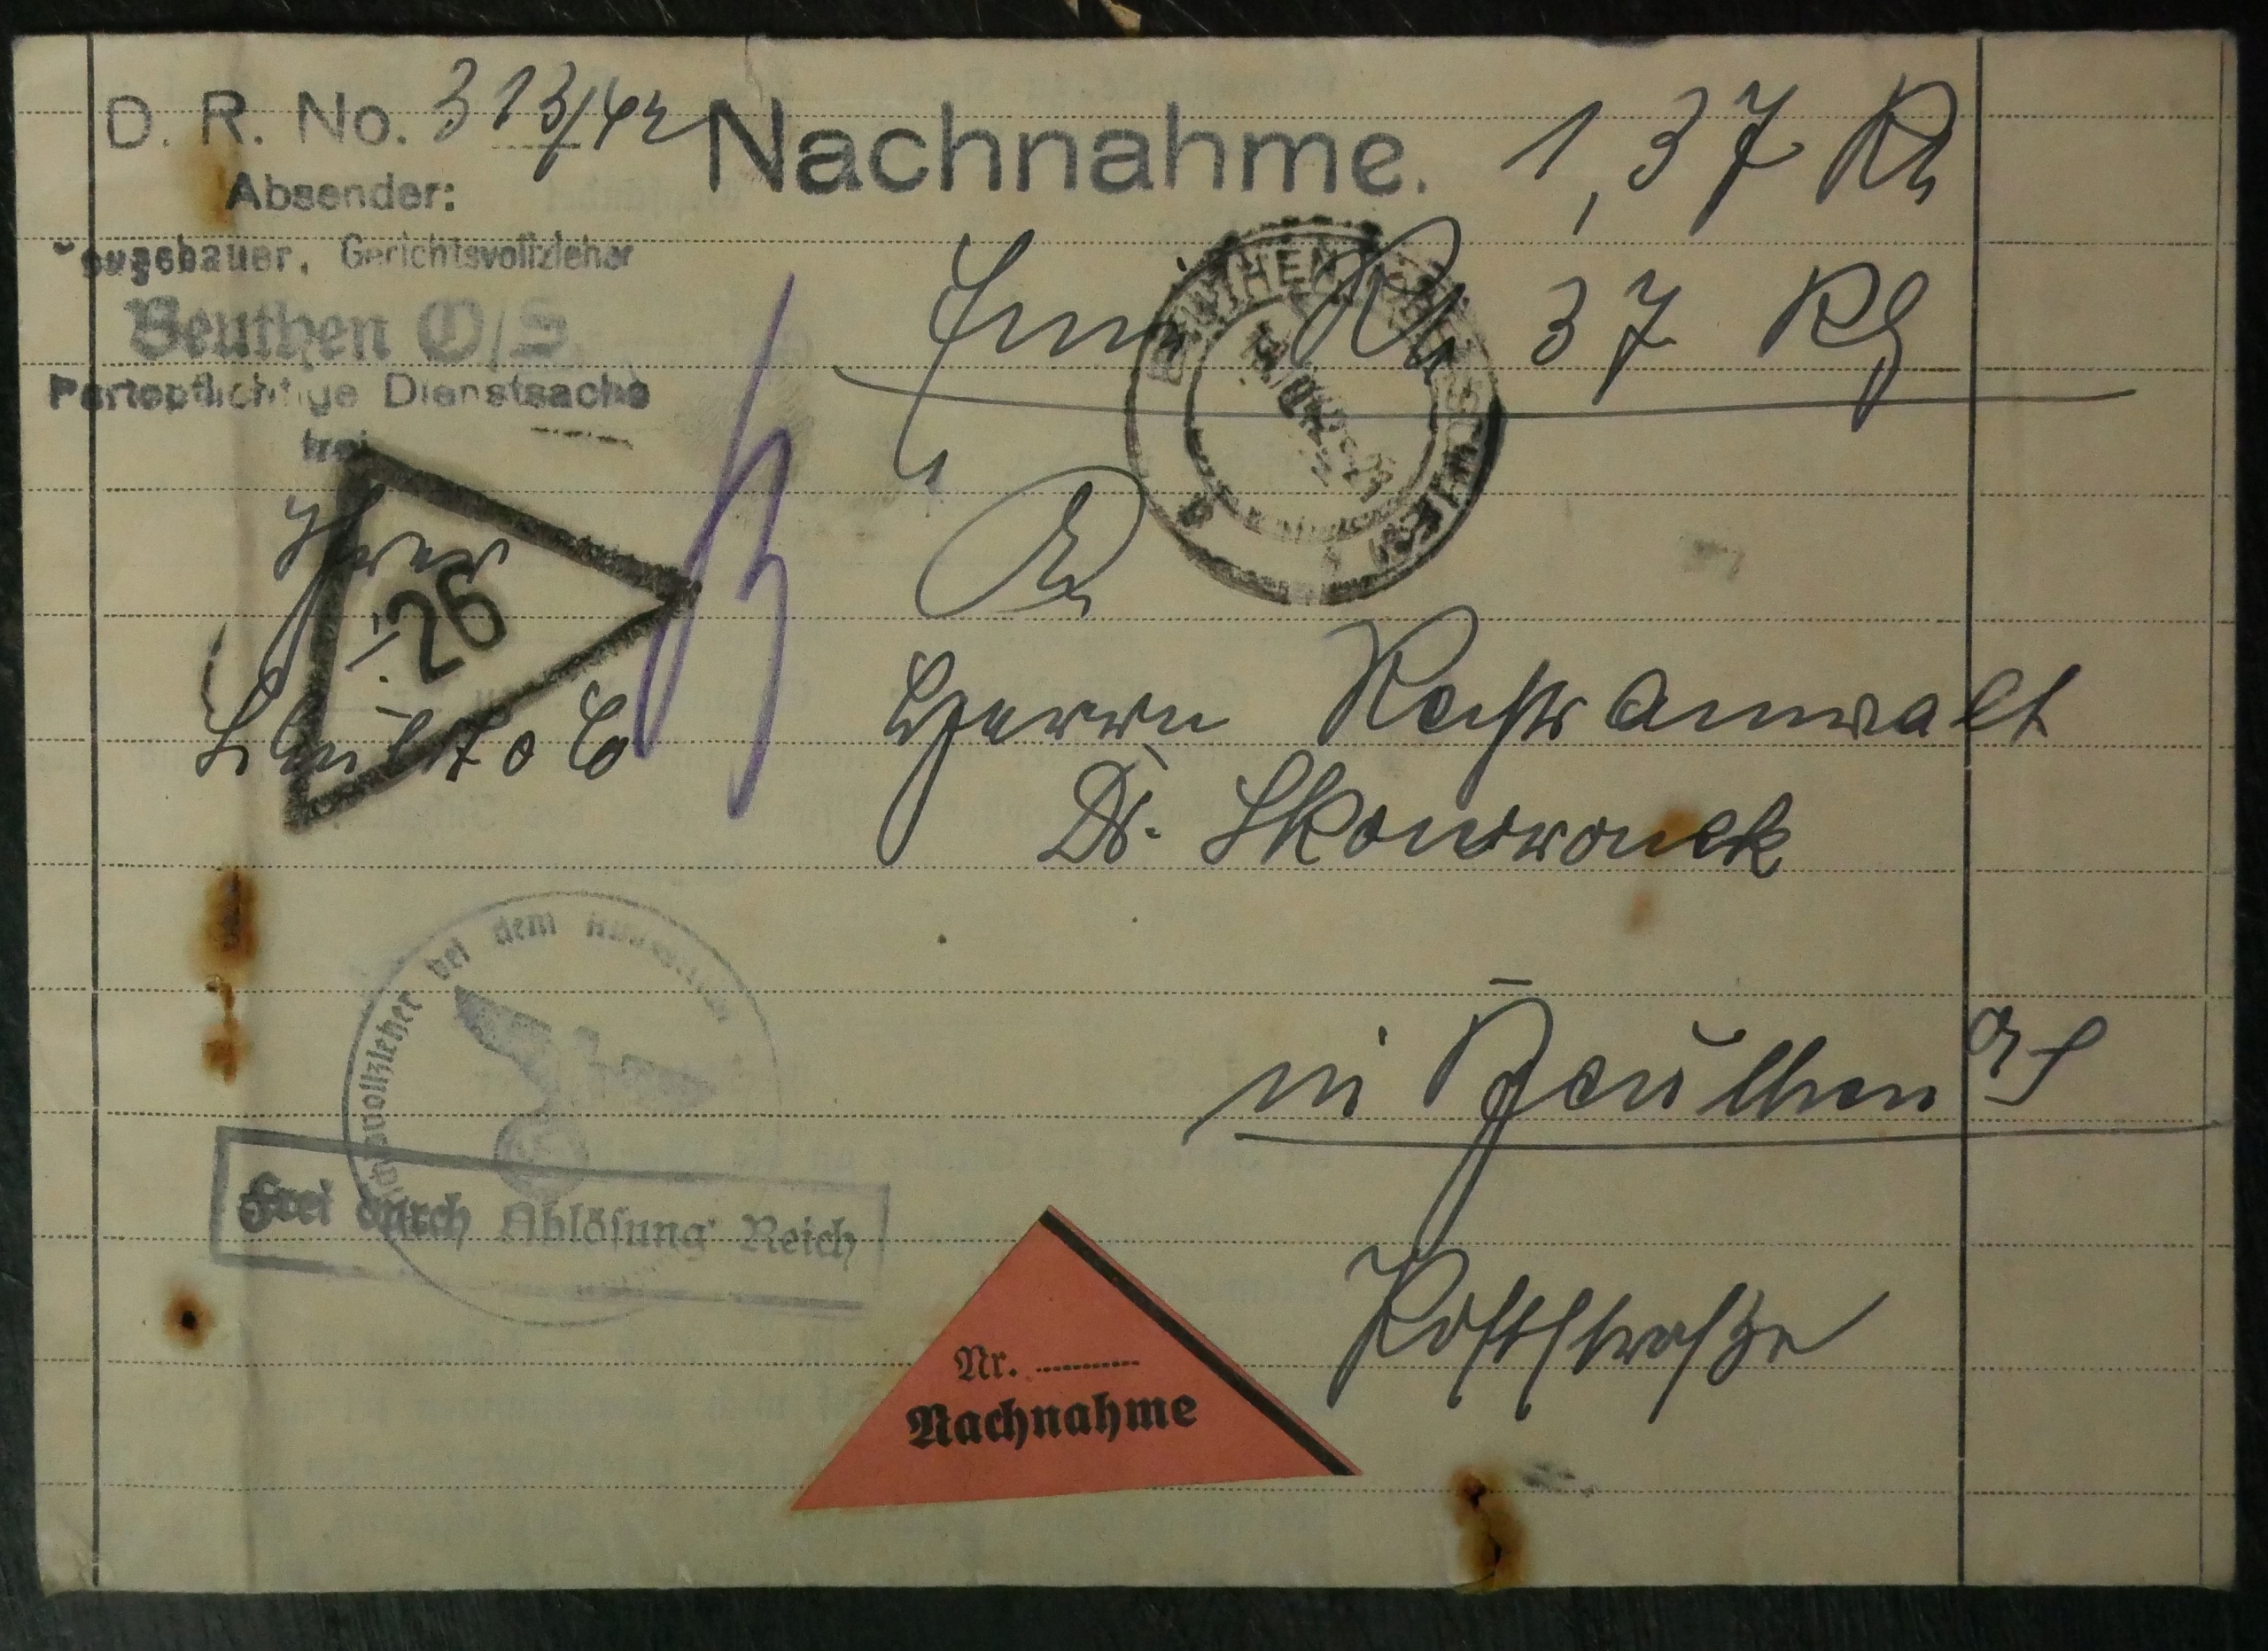 D. R. No. 313/42
Nachnahme. 1,37 RM
Absender:
Gerichtsvollzieher
Beuthen O/S
Portopflichtige Dienstsache
frei
Ein RM 37 Rf
26
An
Herrn Rechtsanwalt
Dr. Skowronek
in Beuthen OS
Poststraße
bei dem
Frei durch Ablösung Reich
Nr. ............
Nachnahme